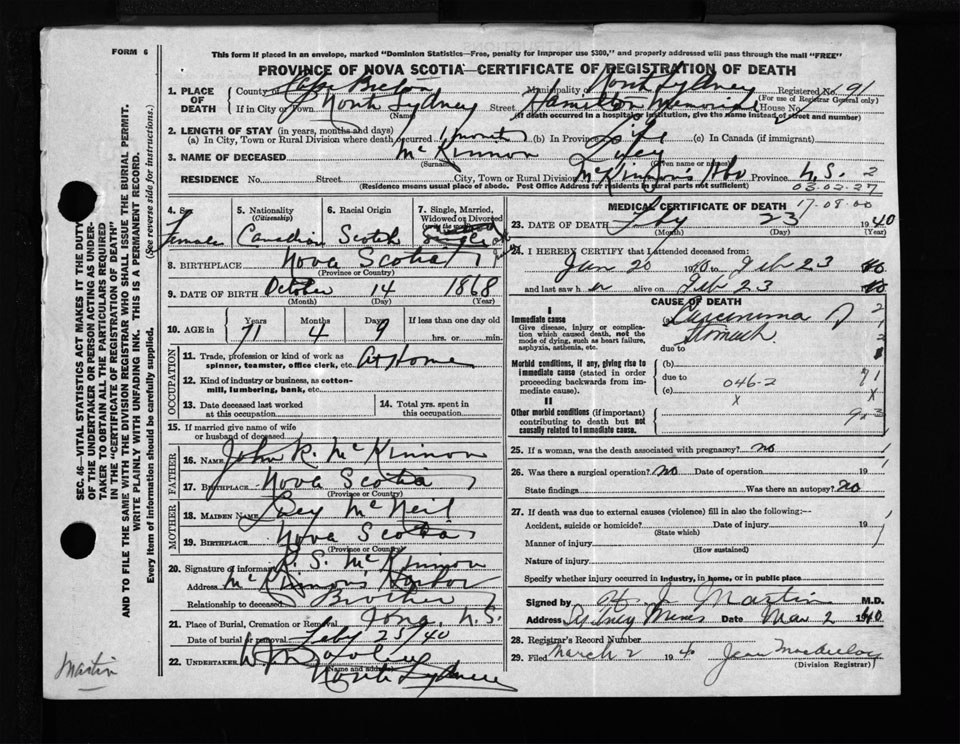 FORM 6
This form if placed in an envelope, marked "Dominion Statistics—Free, penalty for improper use $300," and properly addressed will pass through the mail "FREE"
PROVINCE OF NOVA SCOTIA—CERTIFICATE OF REGISTRATION OF DEATH
1. PLACE OF DEATH County of Cape Breton Municipality of North Sydney Registered No. 91
(For use of Registrar General only)
If in City or Town North Sydney Street Hamilton Memorial House No.
(Name) (If death occurred in a hospital or institution, give the name instead of street and number)
2. LENGTH OF STAY (in years, months and days)
(a) In City, Town or Rural Division where death occurred 1 month (b) In Province Life (c) In Canada (if immigrant)
3. NAME OF DECEASED McKinnon Lucy
(Surname) (Given name or names)
RESIDENCE No. Street City, Town or Rural Division McKinnon's Hbr Province N.S. 2
(Residence means usual place of abode. Post Office Address for residents in rural parts not sufficient) 03-02-27
4. Sex Female
5. Nationality (Citizenship) Canadian
6. Racial Origin Scotch
7. Single, Married, Widowed or Divorced (write the word) Single
8. BIRTHPLACE Nova Scotia
(Province or Country)
9. DATE OF BIRTH October 14 1868
(Month) (Day) (Year)
10. AGE in Years Months Days If less than one day old
71 4 9 hrs. or min.
OCCUPATION
11. Trade, profession or kind of work as spinner, teamster, office clerk, etc. At Home
12. Kind of industry or business, as cotton-mill, lumbering, bank, etc.
13. Date deceased last worked at this occupation
14. Total yrs. spent in this occupation
15. If married give name of wife or husband of deceased
FATHER
16. NAME John R. McKinnon
17. BIRTHPLACE Nova Scotia
(Province or Country)
MOTHER
18. MAIDEN NAME Lucy McNeil
19. BIRTHPLACE Nova Scotia
(Province or Country)
20. Signature of informant R. S. McKinnon
Address McKinnon's Harbor
Relationship to deceased Brother
21. Place of Burial, Cremation or Removal Iona, N.S.
Date of burial or removal Feby 25/40
22. UNDERTAKER
(Name and address)
North Sydney
MEDICAL CERTIFICATE OF DEATH 17-08-00
23. DATE OF DEATH Feby 23 1940
(Month) (Day) (Year)
24. I HEREBY CERTIFY that I attended deceased from:
Jan 20 1940 to Feb 23 40
and last saw h er alive on Feb 23 40
CAUSE OF DEATH
I
Immediate cause (a) Carcinoma of
Give disease, injury or complication which caused death, not the mode of dying, such as heart failure, asphyxia, asthenia, etc. Stomach
due to
Morbid conditions, if any, giving rise to immediate cause (stated in order proceeding backwards from immediate cause). (b)
due to 046-2 71
(c) x x
II
Other morbid conditions (if important) contributing to death but not causally related to immediate cause.
25. If a woman, was the death associated with pregnancy? no
26. Was there a surgical operation? no Date of operation 19
State findings Was there an autopsy? no
27. If death was due to external causes (violence) fill in also the following:—
Accident, suicide or homicide? Date of injury 19
(State which)
Manner of injury
(How sustained)
Nature of injury
Specify whether injury occurred in industry, in home, or in public place
Signed by H J Martin M.D.
Address Sydney Mines Date Mar 2 1940
28. Registrar's Record Number
29. Filed March 2 1940 Jean
(Division Registrar)
SEC. 46—VITAL STATISTICS ACT MAKES IT THE DUTY OF THE UNDERTAKER OR PERSON ACTING AS UNDERTAKER TO OBTAIN ALL THE PARTICULARS REQUIRED IN THE "CERTIFICATE OF REGISTRATION OF DEATH" AND TO FILE THE SAME WITH THE DIVISION REGISTRAR WHO SHALL ISSUE THE BURIAL PERMIT.
WRITE PLAINLY WITH UNFADING INK. THIS IS A PERMANENT RECORD.
Every item of information should be carefully supplied. (See reverse side for instructions.)
Martin